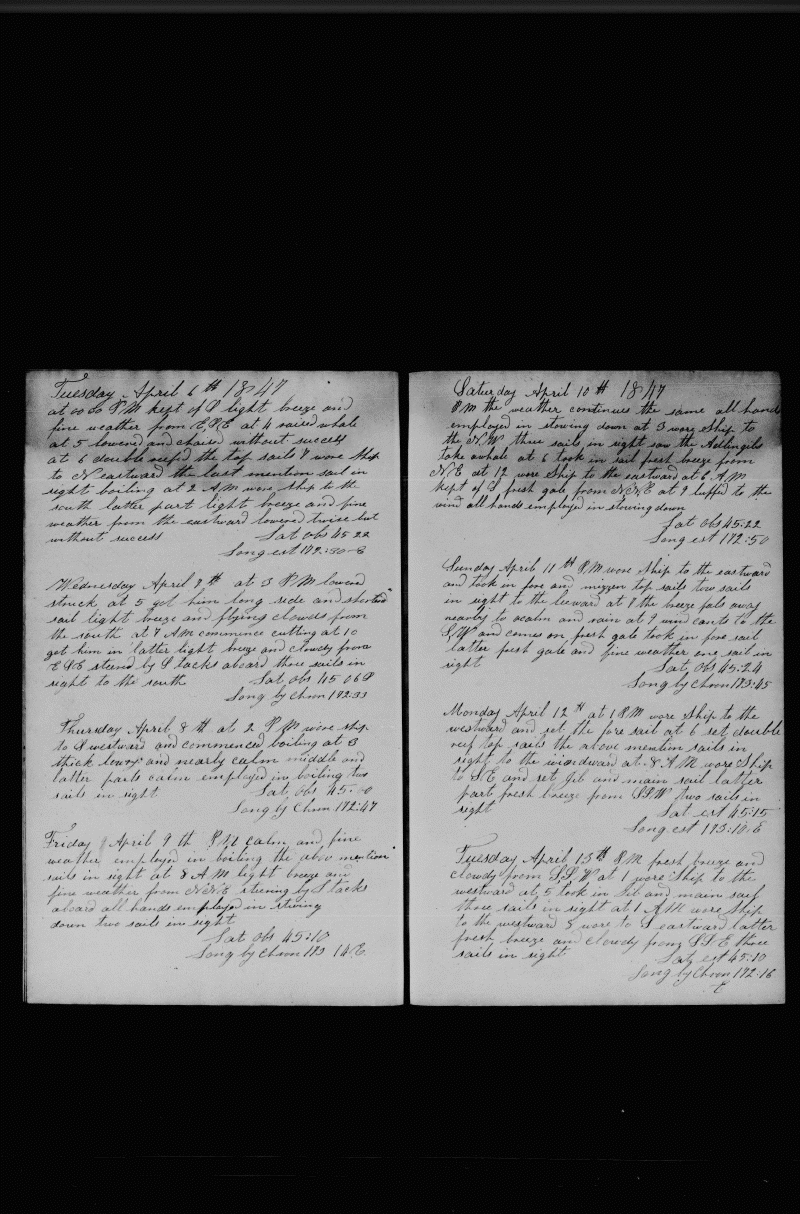 Tuesday April 6 th 1847
P M kept of S light breeze and
fine weather from E,S,E at 4 raised whale
at 5 lowered and chaised without success
at 6 double reefd the top sails 8 wore ship
to N eastward the last mention sail in
sight boiling at 2 A M wore ship to the
south latter part light breeze and fine
weather from the eastward lowered twise but
without success Lat obs 45 22
Long est 172=30-E
Wednesday April 7th at 3 P M lowerd
struck at 5 got him long side and shortend
sail light breeze and flying clowds from
the south at 7 A M commence cutting at 10
got him in latter light breeze and clowdy from
E S E steerd by S tacks aboard three sails in
sight to the south Lat obs 45 06 S
Long by Chron 172=33
Thursday April 8 th at 2 P M wore ship
to S westward and commenced boiling at 3
thick and nearly calm middle and
latter parts calm employed in boiling two
sails in sight Lat, obs 45=10
Long by Chron 172=47
Friday April 9 th P M calm and fine
weather employed in boiling the abov mention
sails in sight at 8 A M light breeze and
fine weather from N N E steering by S tacks
aboard all hands employed in stowing
down two sails in sight
Lat obs 45=10
Long by Chron 173 14 E
Saturday April 10 th 1847
P M the weather continues the same all hands
employed in stowing down at 3 wore ship to
the N,W three sails in sight saw the
take a whale at 6 took in sail fresh breeze from
N,E at 12 wore ship to the eastward at 6 A,M
kept of S fresh gale from N,N,E at 9 luffed to the
wind all hands employed in stowing down
Lat obs 45=22
Long est 172=50
Sunday April 11 th P M wore ship to the eastward
and took in fore and mizzen top sails two sails
in sight to the leeward at 7 the breeze fals away
nearby to acalm and rain at 9 wind cants to the
S,W and comes on fresh gale took in fore sail
latter fresh gale and fine weather one sail in
sight Lat, obs 45=24
Long by Chron 173=45
Monday April 12 th at 1 P M wore ship to the
westward and set the fore sail at 6 set double
reef top sails the above mention sails in
sight to the windward at 8 A M wore ship
to S E and set jib and main sail latter
part fresh breeze from S,S,W two sails in
sight Lat est 45=15
Long est 173=10=E
Tuesday April 13th P,M fresh breeze and
clowdy from S,S,W at 1 wore ship to the
westward at 5 took in jib and main sail
three sails in sight at 1 A M wore ship
to the westward 5 wore to S eastward latter
fresh breeze and clowdy from S S E three
sails in sight Lat est 45=10
Long by Chron 172=16
E